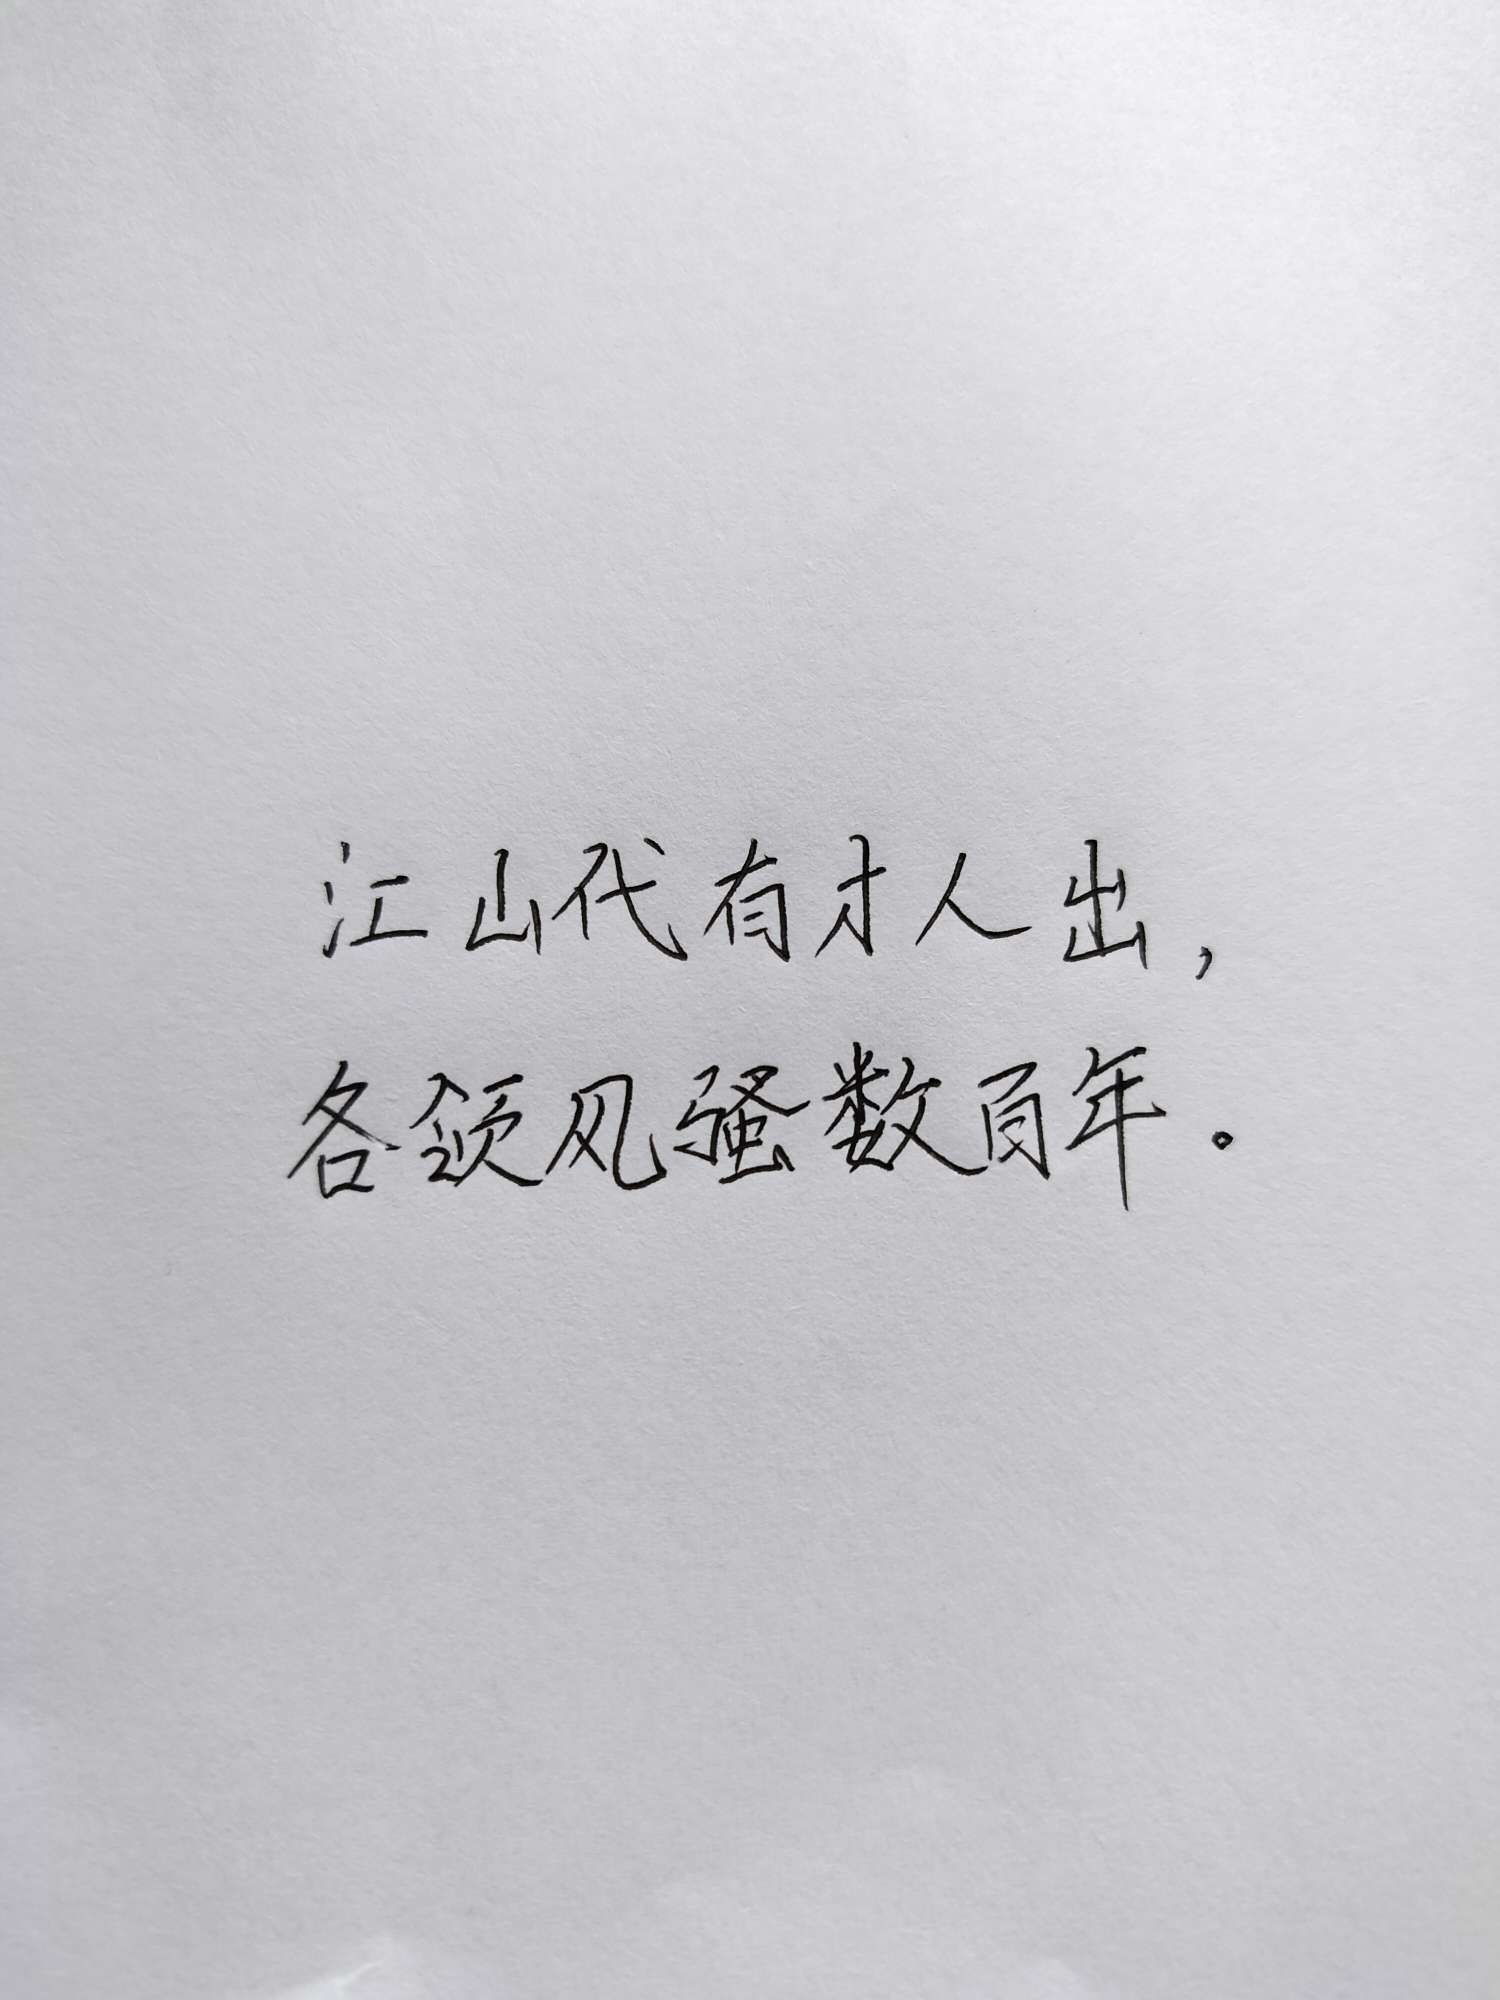 江山代有才人出，
各领风骚数百年。